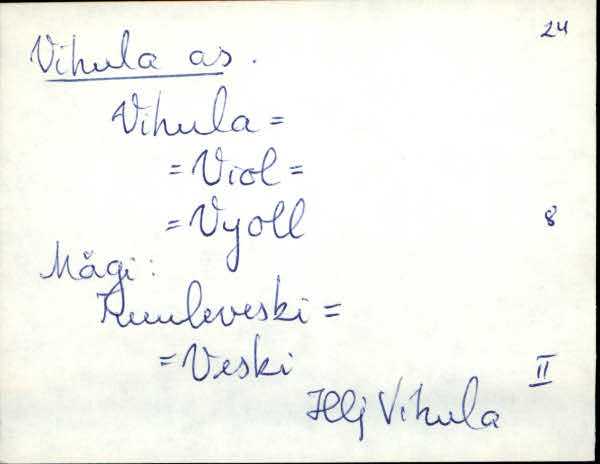 24
Vihula as.
Vihula =
= Viol =
= Vyoll
8
Mägi:
= Veski
II
Hlj Vihula